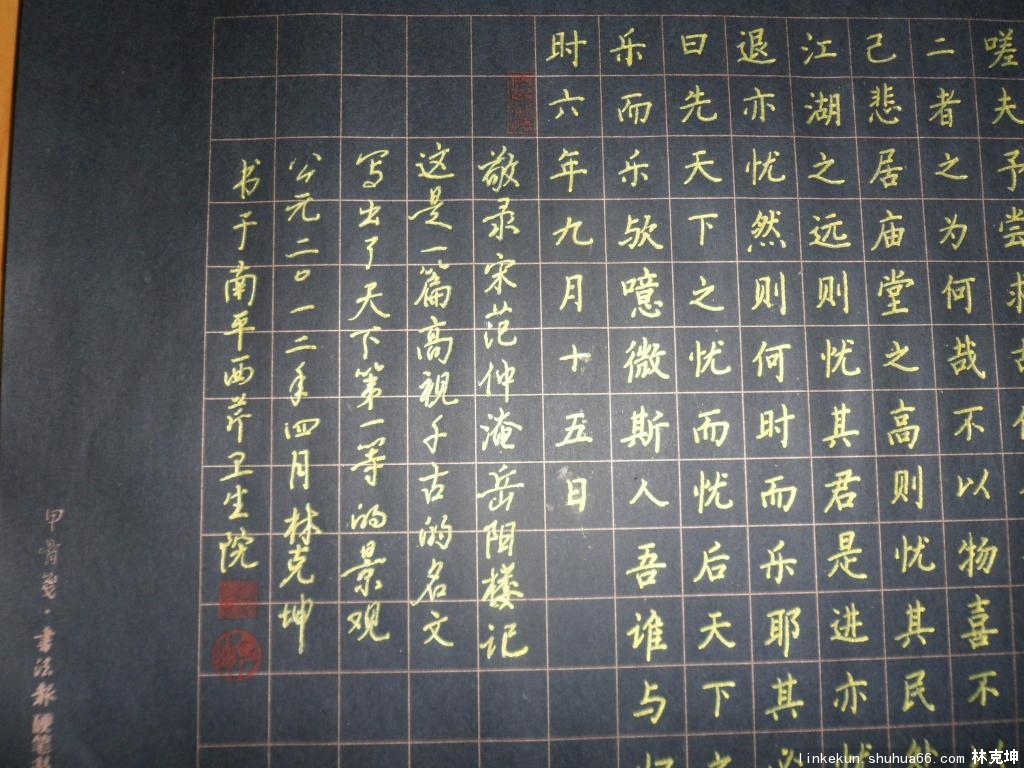 嗟夫予尝求
二者之为何哉不以物喜不
己悲居庙堂之高则忧其民
江湖之远则忧其君是进亦
退亦忧然则何时而乐耶其
曰先天下之忧而忧后天下之
乐而乐欤噫微斯人吾谁与
时六年九月十五日
敬录宋范仲淹岳阳楼记
这是一篇高视千古的名文
写出了天下第一等的景观
公元二〇一二年四月林克坤
书于南平西芹卫生院
甲骨笺·书法报硬笔
linkekun.shuhua66.com 林克坤